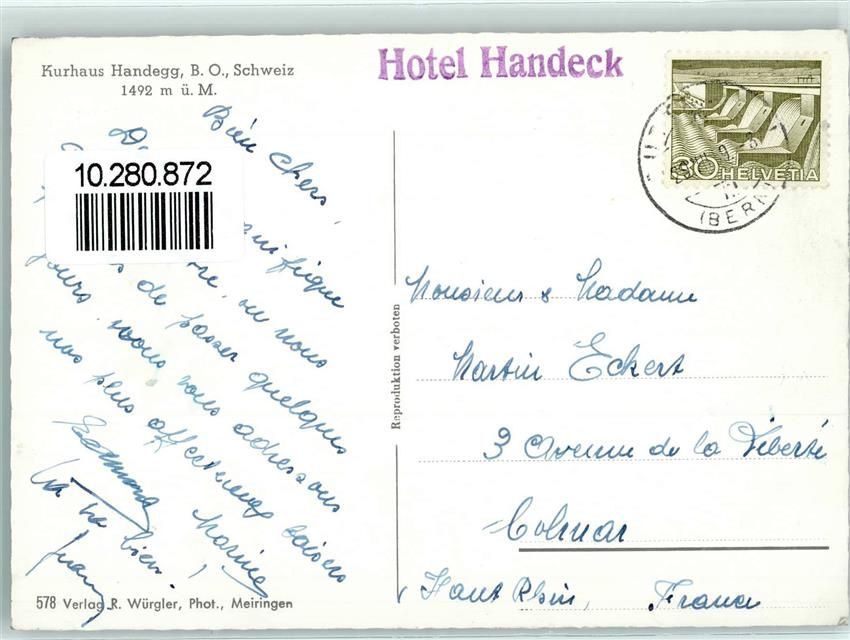 Kurhaus Handegg, B. O., Schweiz
1492 m ü. M.
Hotel Handeck
30 HELVETIA
(BERN)
10.280.872
Bien chers,
magnifique
où nous
de passer quelques
jours, nous vous adressons
nos plus affectueux baisers
Marine
va bien.
Reproduktion verboten
Monsieur & Madame
Martin Eckert
3 Avenue de la Liberté
Colmar
(Haut Rhin, France
578 Verlag R. Würgler, Phot., Meiringen